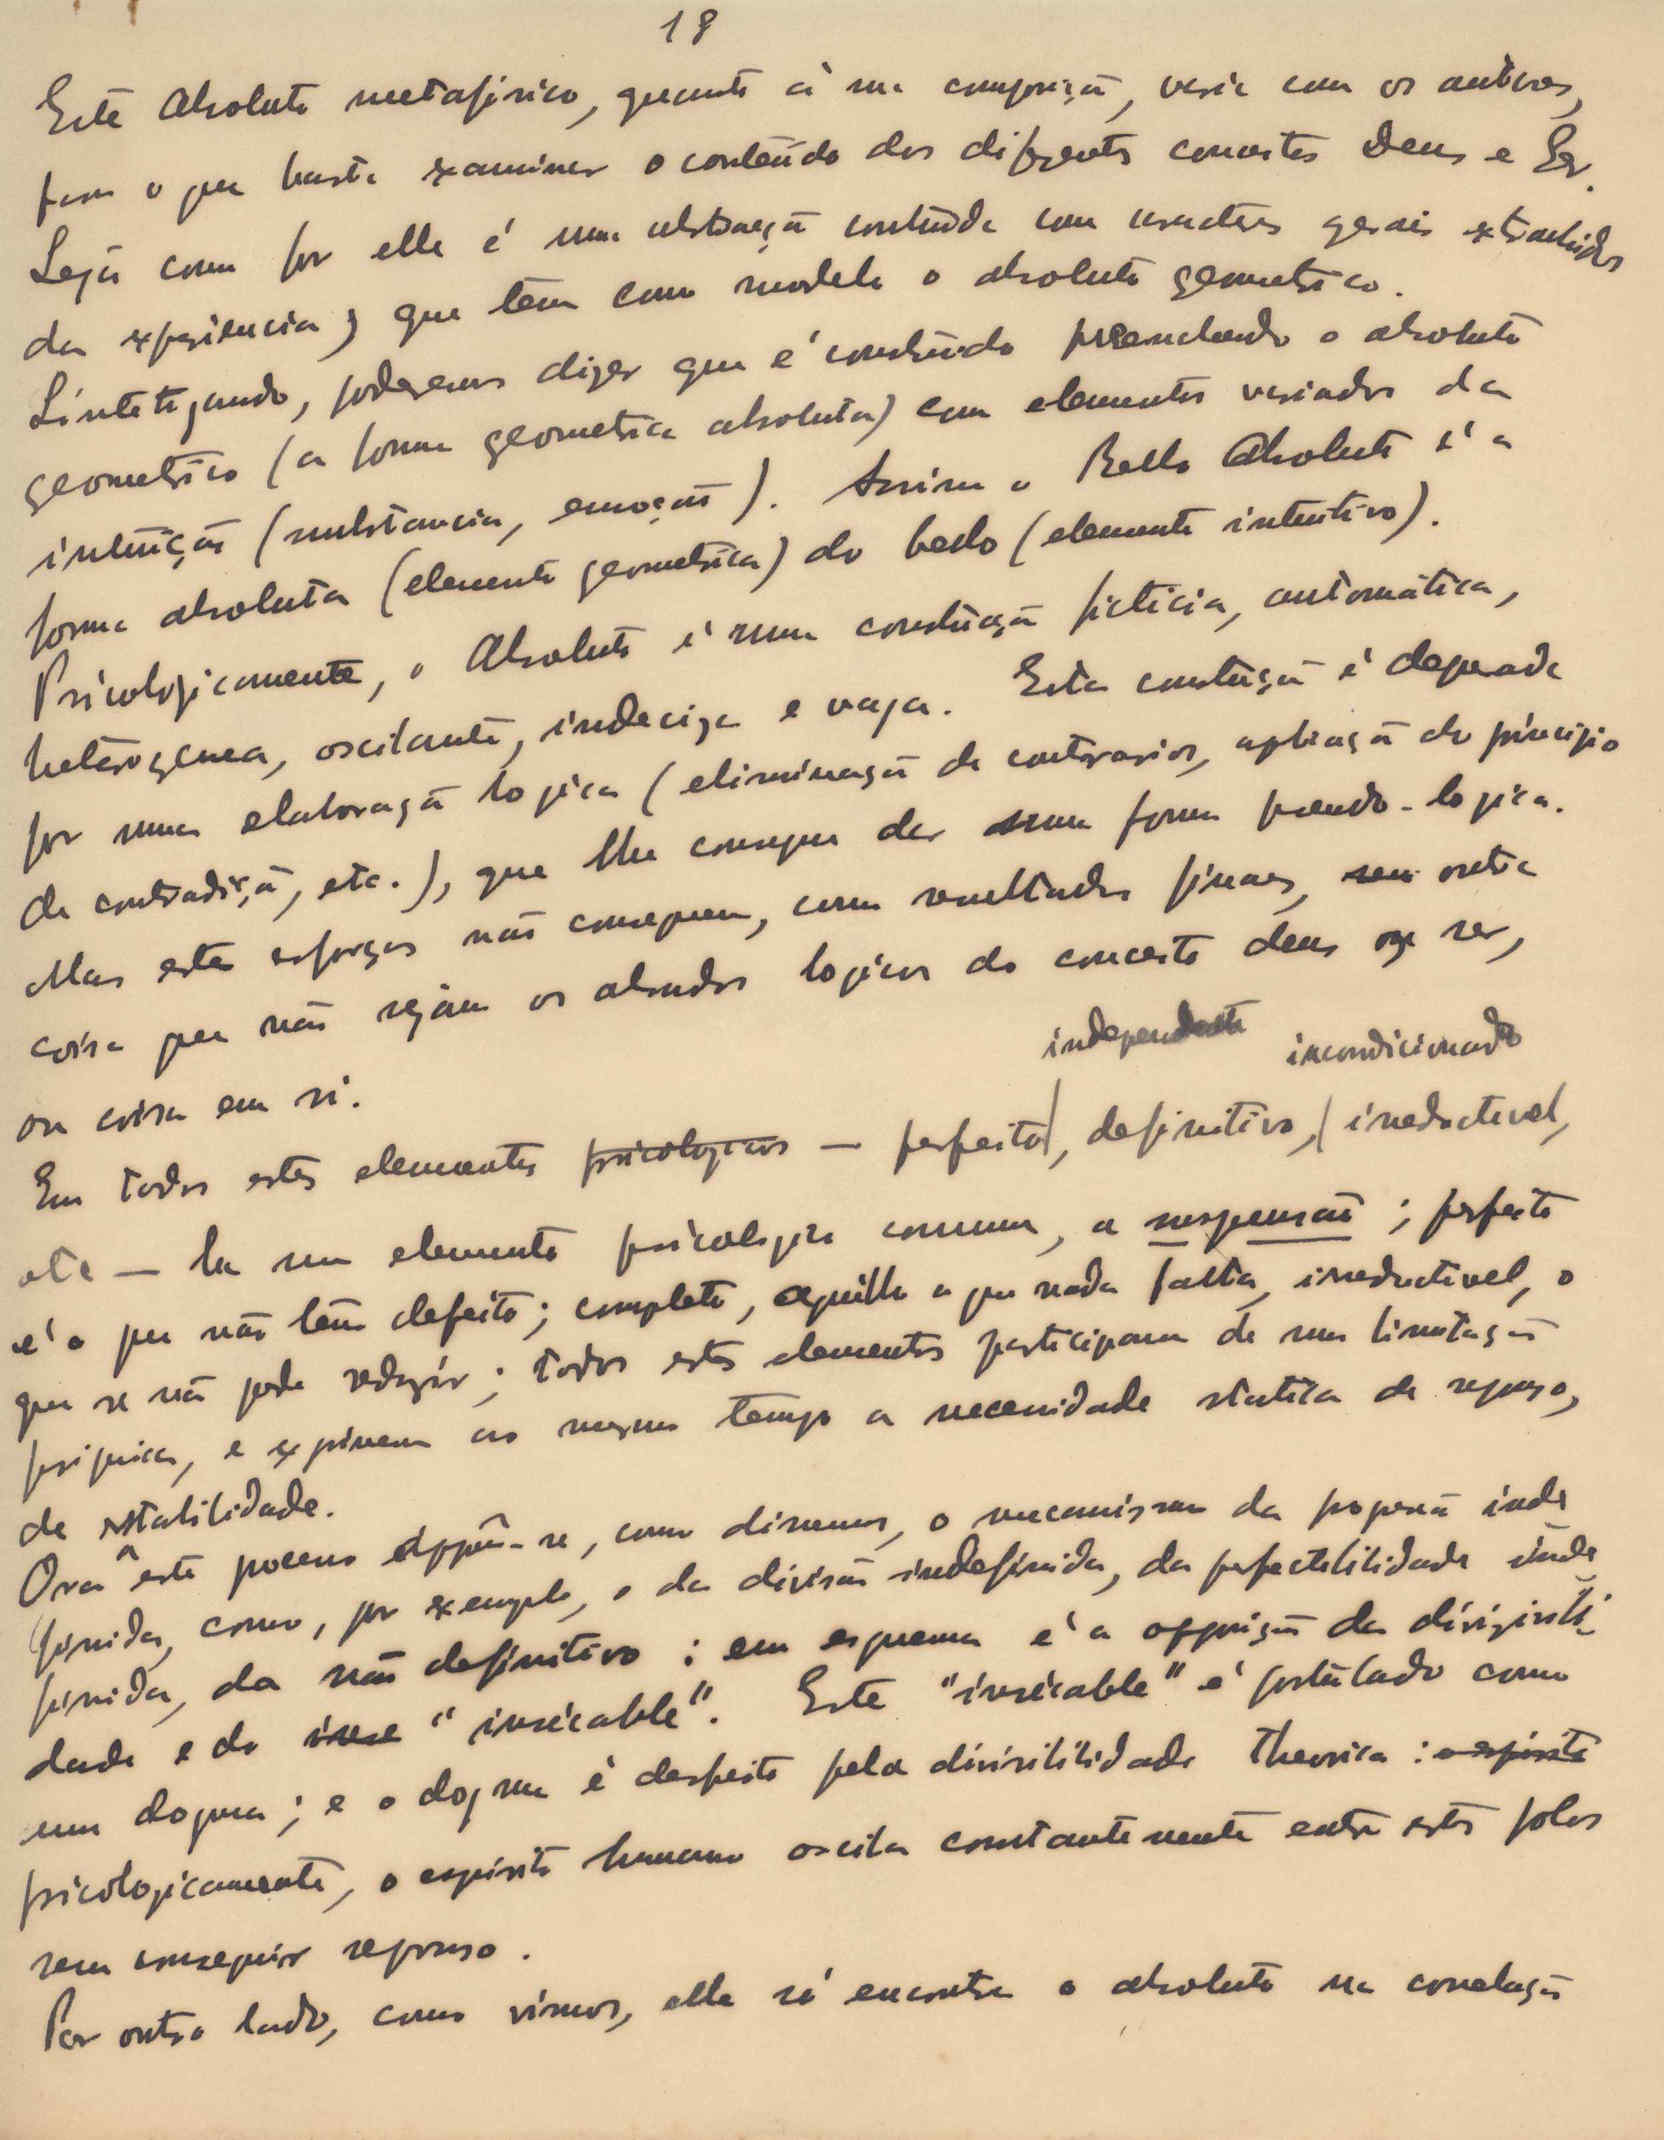 18
Este Absoluto metafisico, quanto á sua composição, varia com os autores,
para o que basta examinar o conteúdo dos diferentes conceitos Deus e Ser.
Seja como fôr elle é uma abstracção contruida com caracteres gerais extrahidos
da experiencia, e que têm como modelo o absoluto geometrico.
Sintetizando, poderemos dizer que é construido preenchendo o absoluto
geometrico (a forma geometrica absoluta) com elementos variados da
intuição (substancia, emoção). Assim o Bello Absoluto é a
forma absoluta (elemento geometrica) do bello (elemento intuitivo).
Psicologicamente, o Absoluto é uma construção ficticia, automática,
heterogenea, oscilante, indeciza e vaga. Esta construção é depurada
por uma elaboração logica (eliminação de contrarios, aplicação do principio
de contradicção, etc.), que lhe consegue dar uma forma pseudo-logica.
Mas estes esforços não conseguem, como resultados finaes, outra
coisa que não sejam os absurdos logicos do conceito deus ou ser,
ou coisa em si.
independente incondicionado
Em todos estes elementos psicologicos — perfeito, definitivo, irreductivel,
etc — ha um elemento psicologico comum, a suspensão; perfeito
é o que não tem defeito; completo, aquillo a que nada falta, irreductivel, o
que se não pode reduzir; todos estes elementos participam de uma limitação
psiquica, e exprimem ao mesmo tempo a necessidade statica de repouso,
de estabilidade.
Ora a este processo oppõe-se, como dissemos, o mecanismo da progressão inde
finida, como, por exemplo, o da divisão indefinida, da perfectibilidade inde
finida, da não definitivo: em esquema é a opposição da divizibili-
dade e do inse "insécable". Este "insécable" é postulado como
um dogma; e o dogma é desfeito pela divisibilidade theorica: o espirito
psicologicamente, o espirito humano oscila constantemente entre estes polos
sem conseguir repouso.
Por outro lado, como vimos, elle só encontra o absoluto na correlação